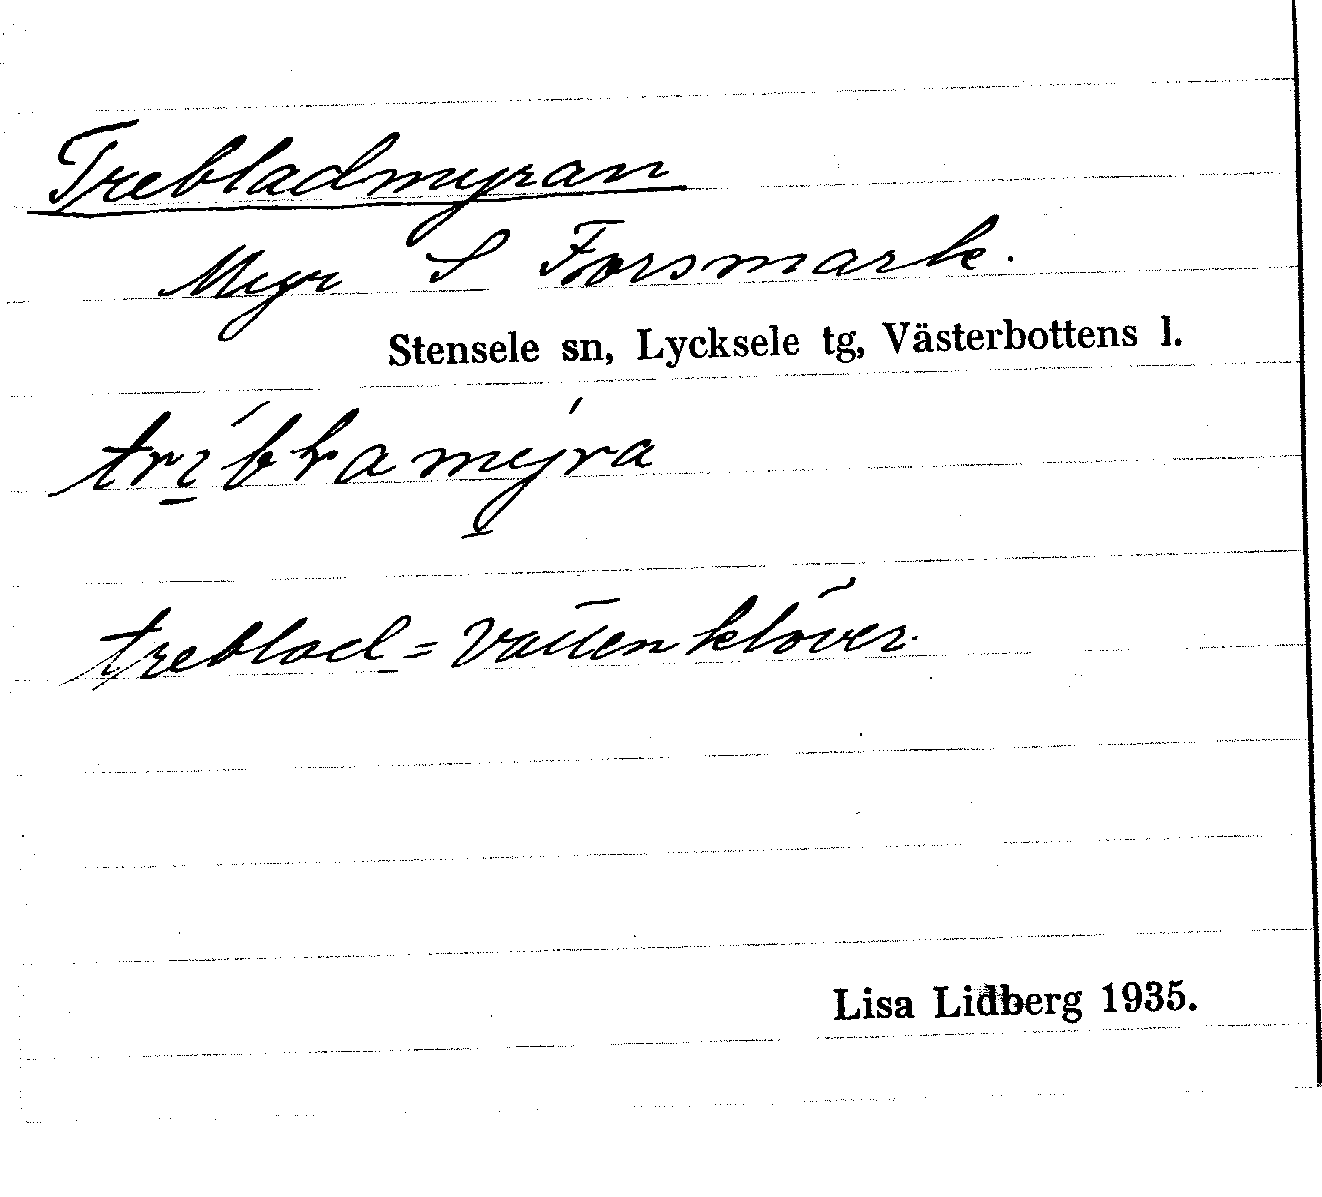 Trebladmyran
Myr S Forsmark.
Stensele sn, Lycksele tg, Västerbottens l.
treblad = Vattenklöver.
Lisa Lidberg 1935.